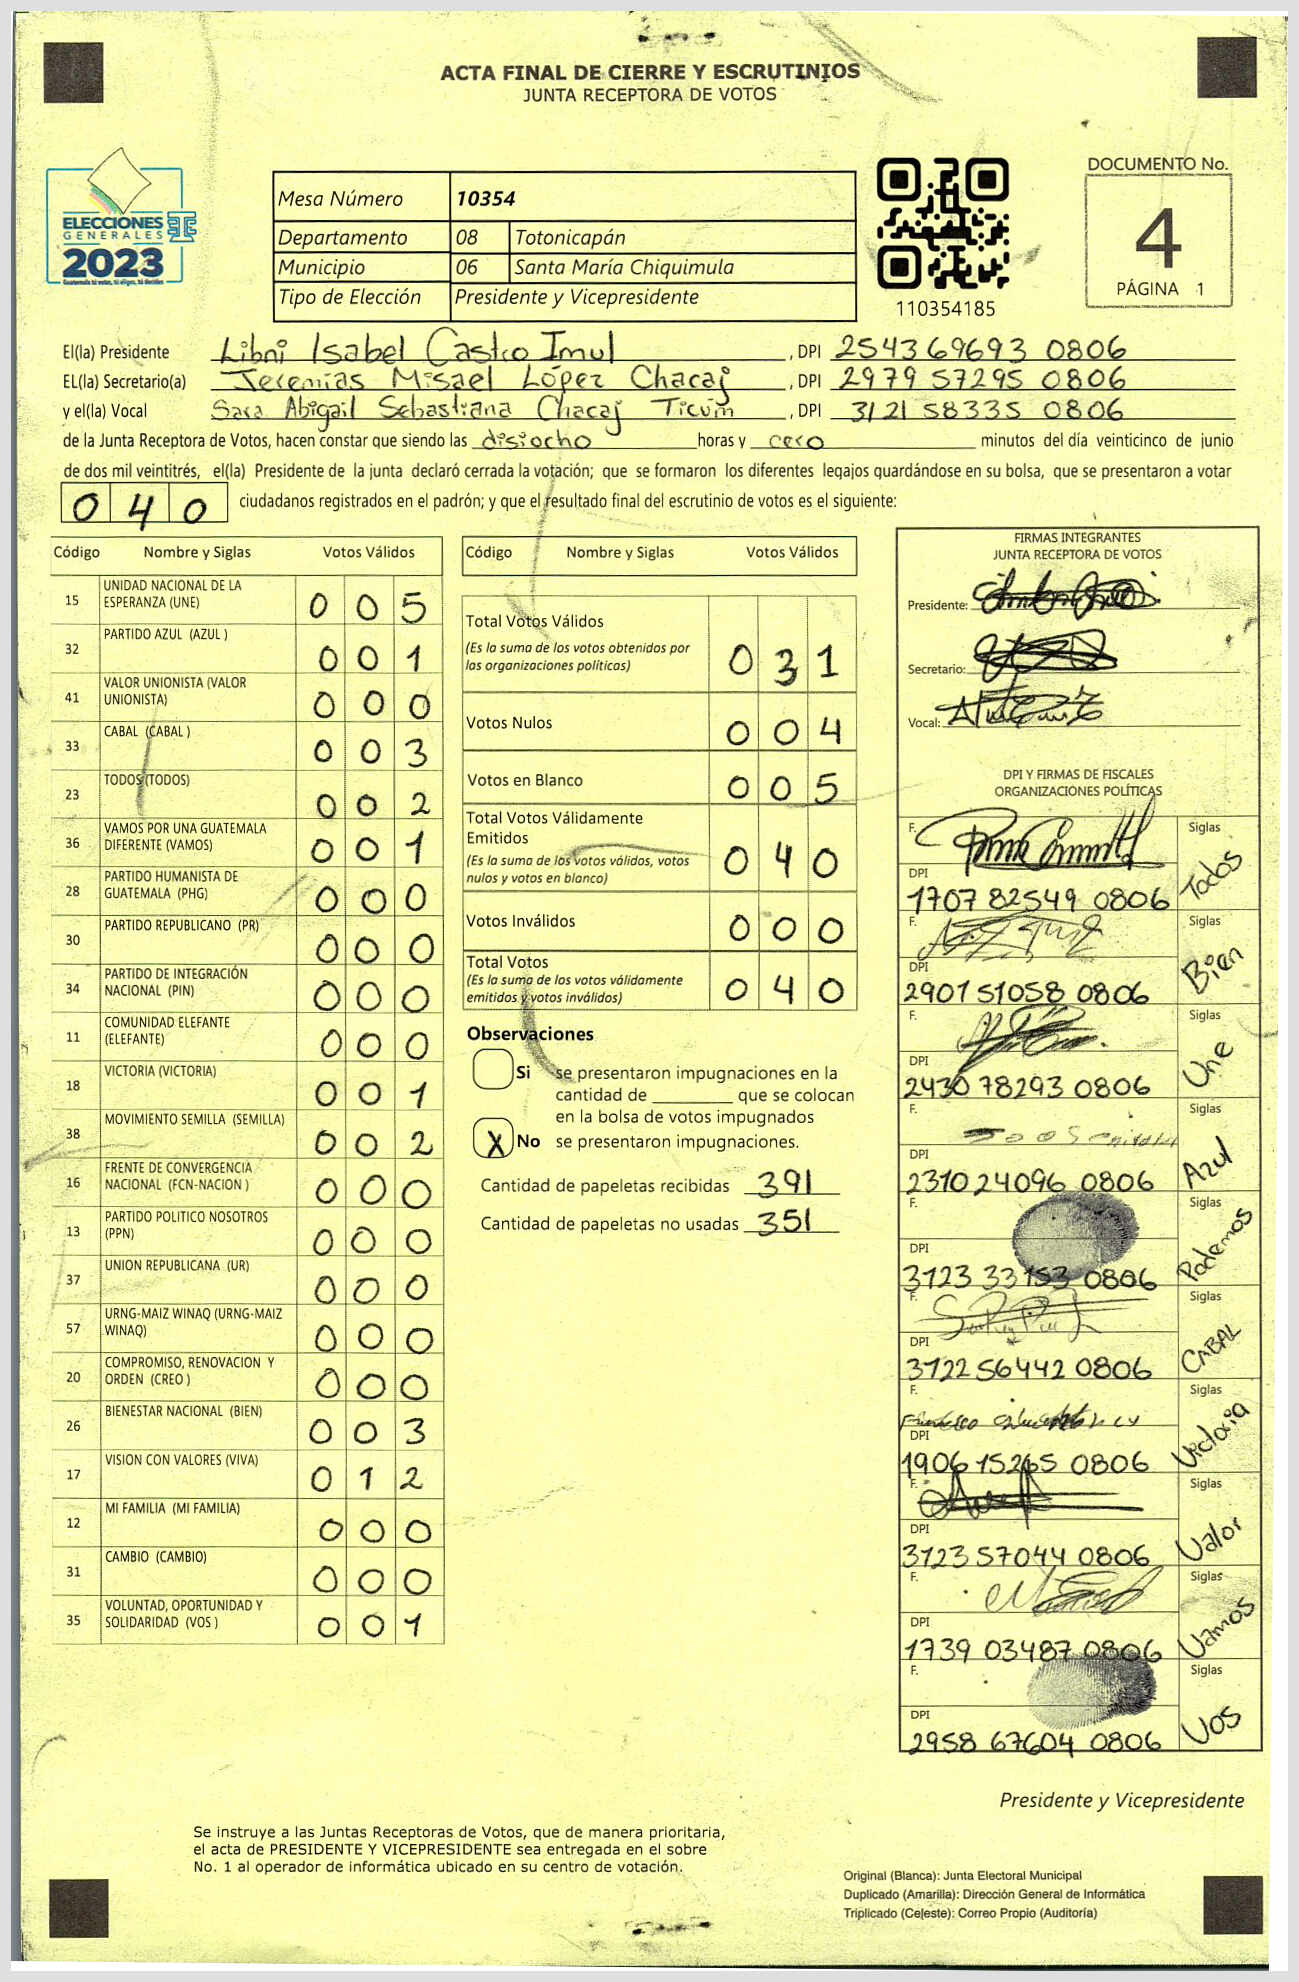 ACTA FINAL DE CIERRE Y ESCRUTINIOS
JUNTA RECEPTORA DE VOTOS
ELECCIONES
GENERALES
2023
Mesa Número 10354
Departamento 08 Totonicapán
Municipio 06 Santa María Chiquimula
Tipo de Elección Presidente y Vicepresidente
110354185
DOCUMENTO No.
4
PÁGINA 1
El(la) Presidente Libni Isabel Castro Imul , DPI 2543 69693 0806
EL(la) Secretario(a) Jeremías Misael López Chacaj , DPI 2979 57295 0806
y el(la) Vocal Sara Abigail Sebastiana Chacaj Ticúm , DPI 3121 58335 0806
de la Junta Receptora de Votos, hacen constar que siendo las disiocho horas y cero minutos del día veinticinco de junio
de dos mil veintitrés, el(la) Presidente de la junta declaró cerrada la votación; que se formaron los diferentes legajos quardándose en su bolsa, que se presentaron a votar
040 ciudadanos registrados en el padrón; y que el resultado final del escrutinio de votos es el siguiente:
Código Nombre y Siglas Votos Válidos
15 UNIDAD NACIONAL DE LA ESPERANZA (UNE) 005
32 PARTIDO AZUL (AZUL ) 001
41 VALOR UNIONISTA (VALOR UNIONISTA) 000
33 CABAL (CABAL ) 003
23 TODOS (TODOS) 002
36 VAMOS POR UNA GUATEMALA DIFERENTE (VAMOS) 001
28 PARTIDO HUMANISTA DE GUATEMALA (PHG) 000
30 PARTIDO REPUBLICANO (PR) 000
34 PARTIDO DE INTEGRACIÓN NACIONAL (PIN) 000
11 COMUNIDAD ELEFANTE (ELEFANTE) 000
18 VICTORIA (VICTORIA) 001
38 MOVIMIENTO SEMILLA (SEMILLA) 002
16 FRENTE DE CONVERGENCIA NACIONAL (FCN-NACION ) 000
13 PARTIDO POLITICO NOSOTROS (PPN) 000
37 UNION REPUBLICANA (UR) 000
57 URNG-MAIZ WINAQ (URNG-MAIZ WINAQ) 000
20 COMPROMISO, RENOVACION Y ORDEN (CREO ) 000
26 BIENESTAR NACIONAL (BIEN) 003
17 VISION CON VALORES (VIVA) 012
12 MI FAMILIA (MI FAMILIA) 000
31 CAMBIO (CAMBIO) 000
35 VOLUNTAD, OPORTUNIDAD Y SOLIDARIDAD (VOS ) 001
Código Nombre y Siglas Votos Válidos
Total Votos Válidos 031
(Es la suma de los votos obtenidos por
las organizaciones políticas)
Votos Nulos 004
Votos en Blanco 005
Total Votos Válidamente
Emitidos 040
(Es la suma de los votos válidos, votos
nulos y votos en blanco)
Votos Inválidos 000
Total Votos 040
(Es la suma de los votos válidamente
emitidos y votos inválidos)
Observaciones
Si se presentaron impugnaciones en la
cantidad de ________ que se colocan
en la bolsa de votos impugnados
X No se presentaron impugnaciones.
Cantidad de papeletas recibidas 391
Cantidad de papeletas no usadas 351
FIRMAS INTEGRANTES
JUNTA RECEPTORA DE VOTOS
Presidente:
Secretario:
Vocal:
DPI Y FIRMAS DE FISCALES
ORGANIZACIONES POLÍTICAS
F. Siglas Todos
DPI 1707 82549 0806
F. Siglas Bien
DPI 2901 51058 0806
F. Siglas Une
DPI 2430 78293 0806
F. Siglas Azul
DPI 2310 24096 0806
F. Siglas Podemos
DPI 3123 33153 0806
F. Siglas CABAL
DPI 3122 56442 0806
F. Siglas Victoria
DPI 1906 15265 0806
F. Siglas Valor
DPI 3123 57044 0806
F. Siglas Vamos
DPI 1739 03487 0806
F. Siglas VOS
DPI 2958 67604 0806
Presidente y Vicepresidente
Se instruye a las Juntas Receptoras de Votos, que de manera prioritaria,
el acta de PRESIDENTE Y VICEPRESIDENTE sea entregada en el sobre
No. 1 al operador de informática ubicado en su centro de votación.
Original (Blanca): Junta Electoral Municipal
Duplicado (Amarilla): Dirección General de Informática
Triplicado (Celeste): Correo Propio (Auditoría)